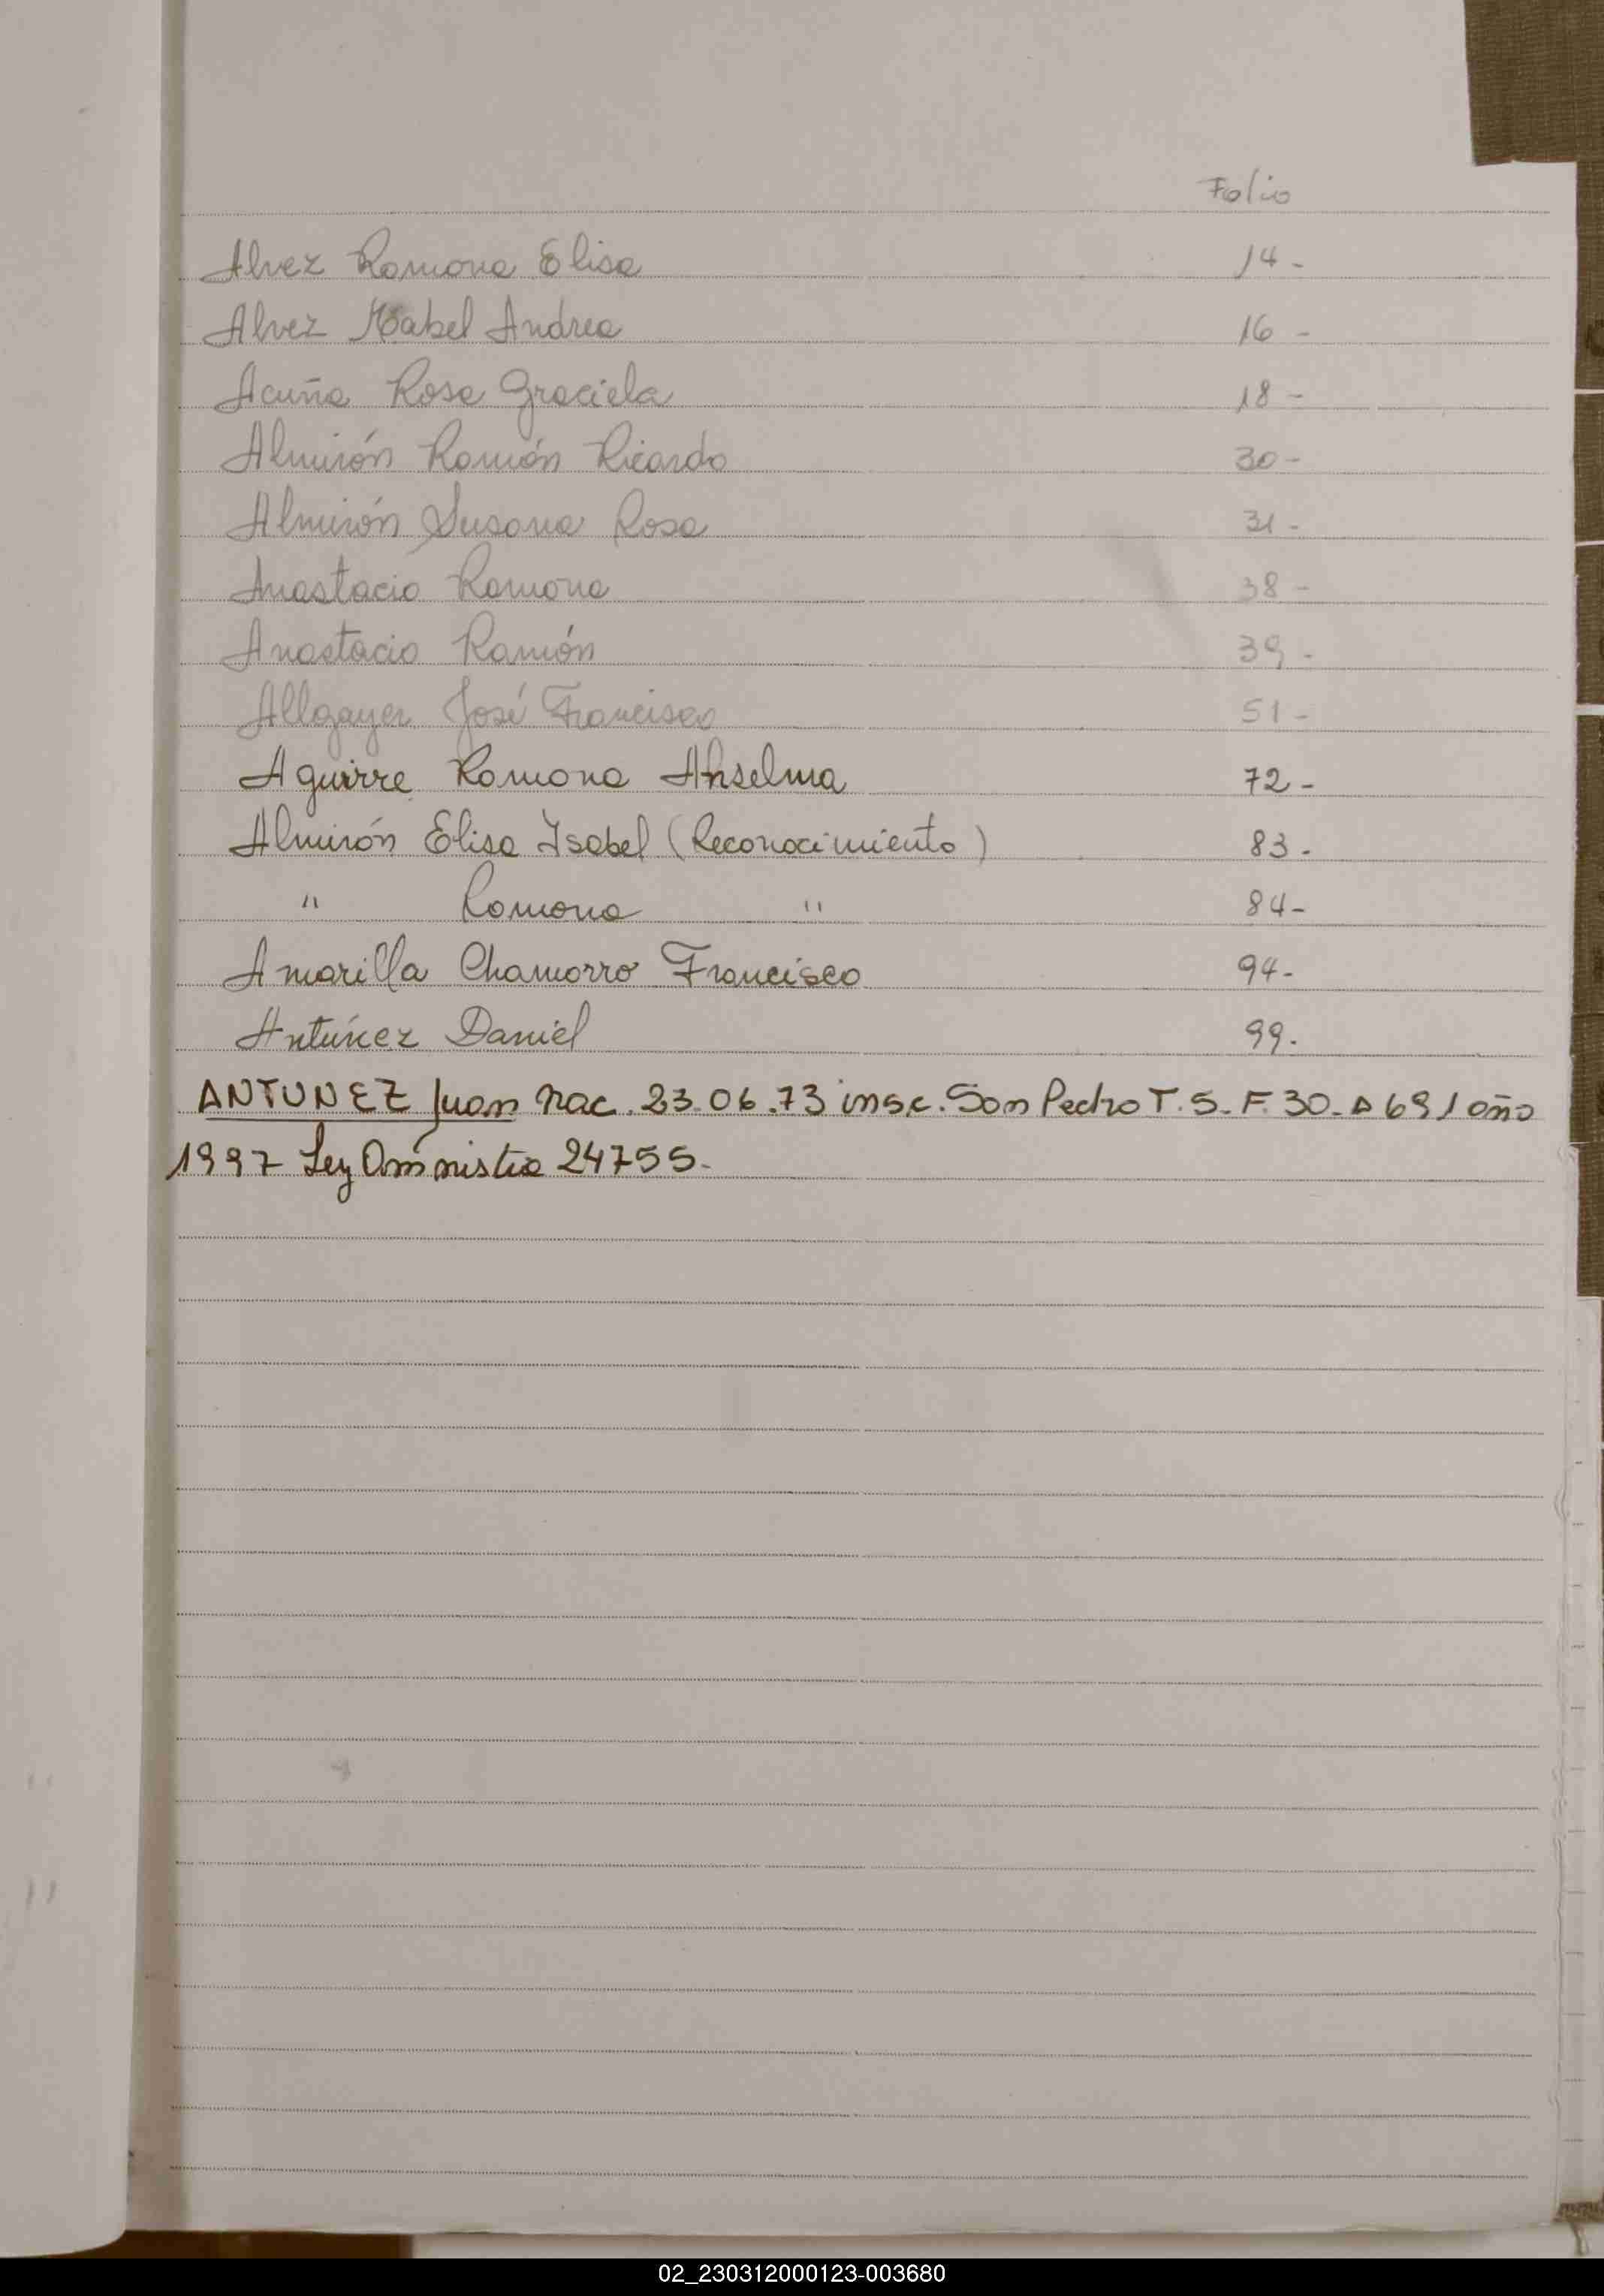 Folio
Alvez Ramona Elisa 14-
Alvez Mabel Andrea 16 -
Acuña Rosa Graciela 18 -
Almirón Ramón Ricardo 30-
Almirón Susana Rosa 31-
Anastacio Ramona 38 -
Anastacio Ramón 39 -
Allgayer José Francisco 51 -
Aguirre Ramona Anselma 72-
Almirón Elisa Isabel (Reconocimiento) 83.
" Ramona " 84-
Amarilla Chamorro Francisco 94-
Antúnez Daniel 99.
ANTUNEZ Juan nac. 23.06.73 insc. San Pedro T. 5. F. 30. A 691 año
1997 Ley Amnistia 24755.
02_230312000123-003680